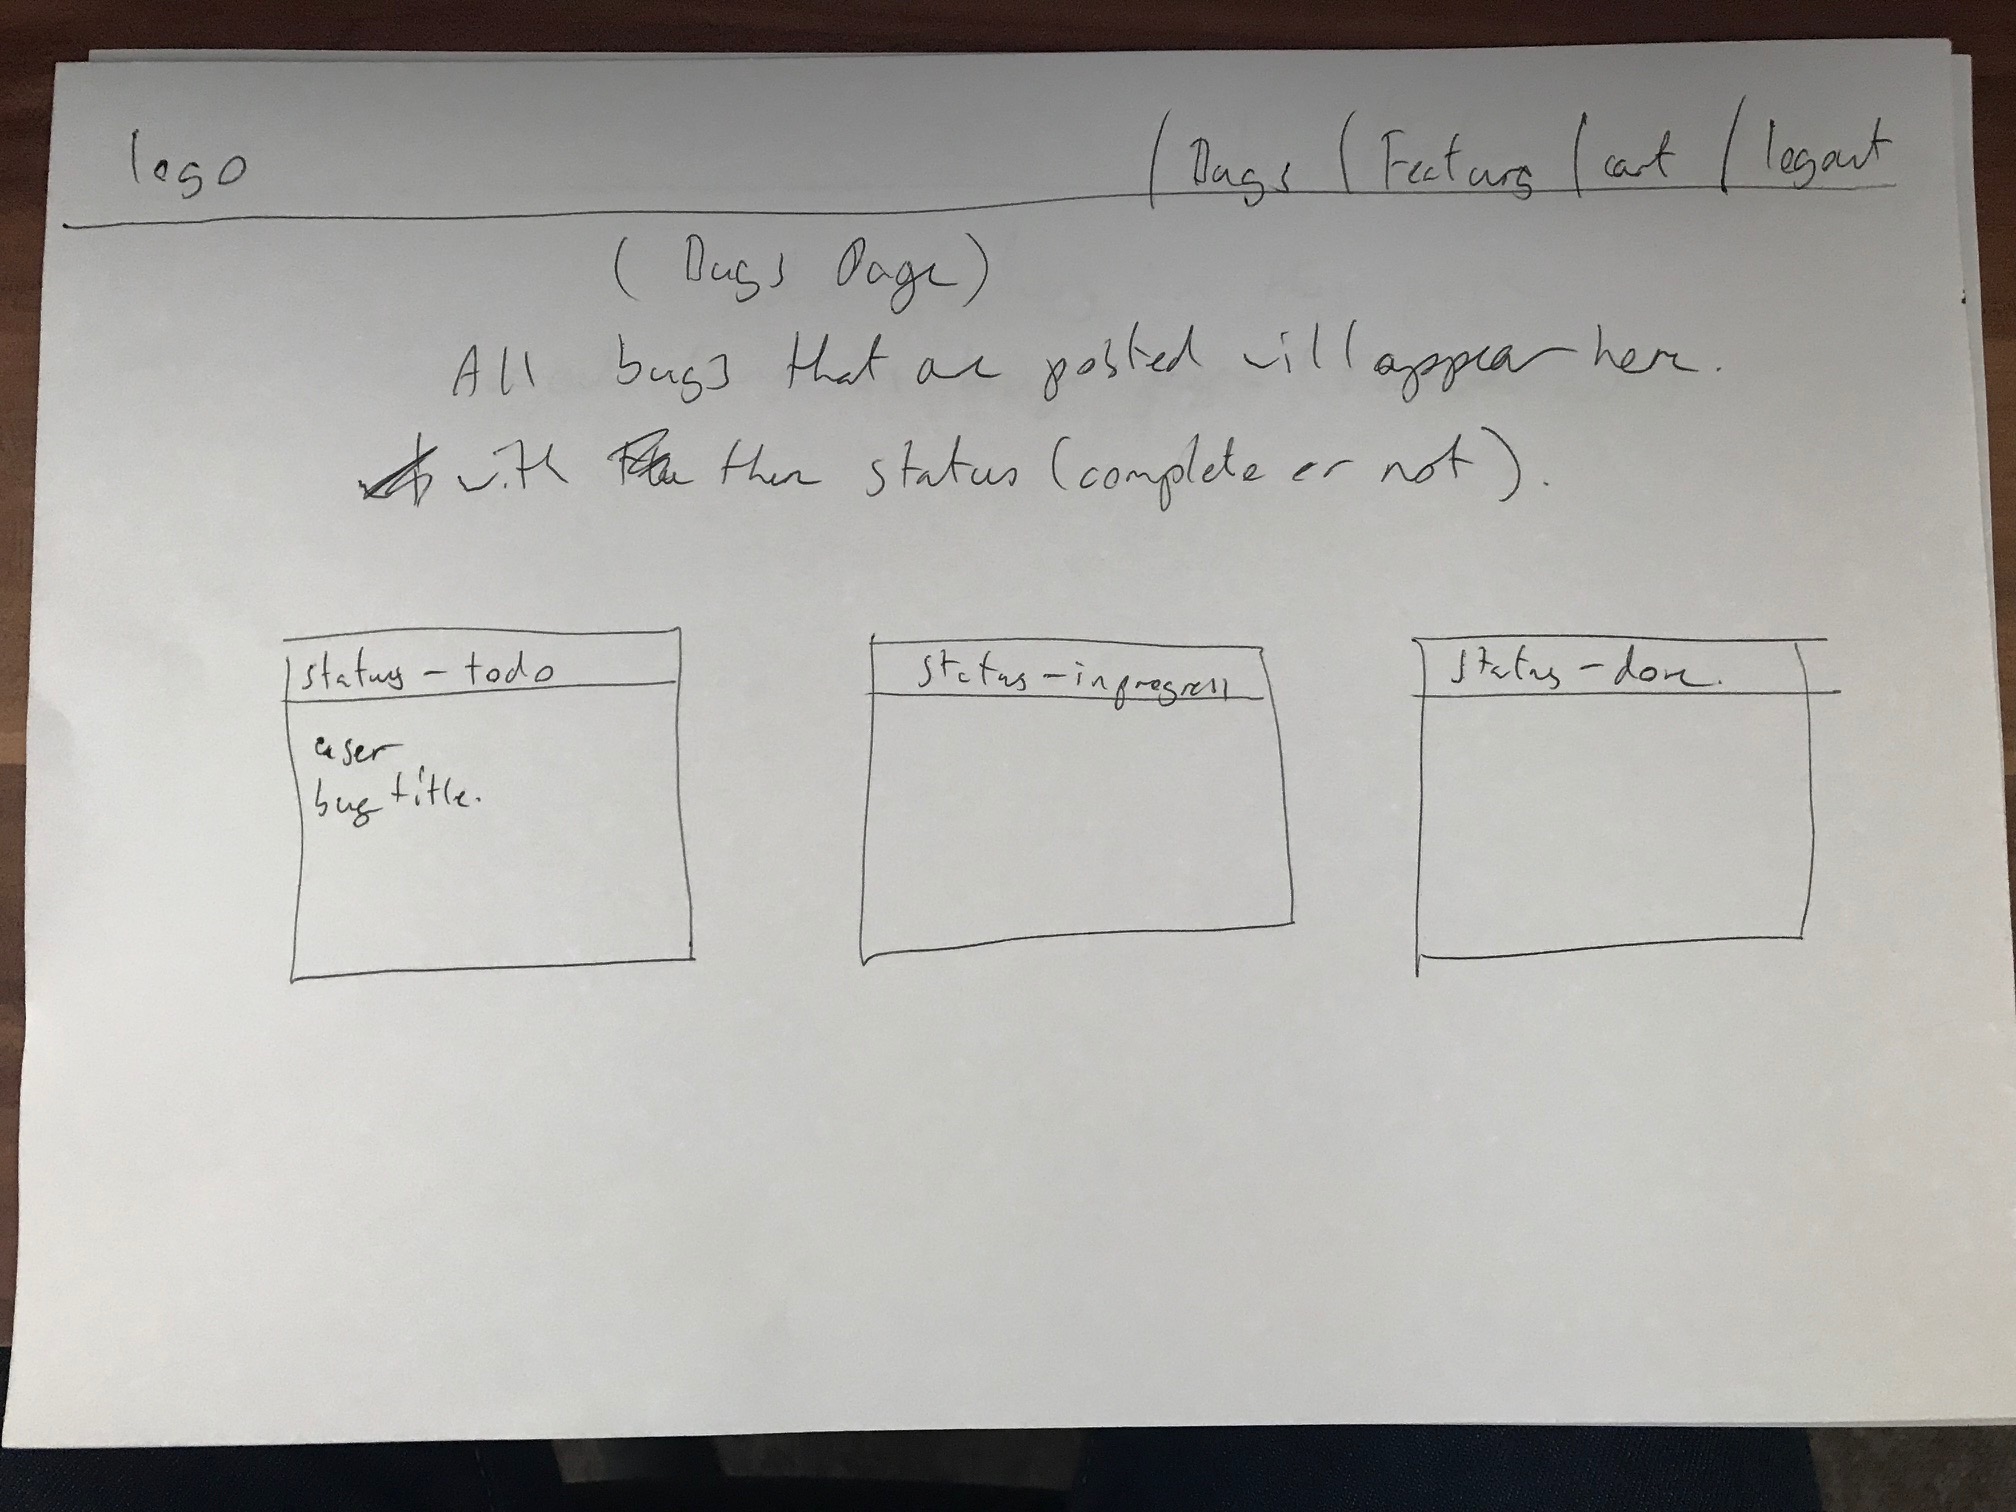 logo | Bugs | Features | cart | logout
(Bugs Page)
All bugs that are posted will appear here.
with their status (complete or not).
status - todo
user
bug title.
status - inprogress
status - done.